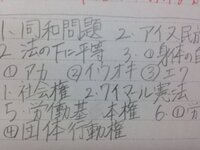 1.同和問題 2.アイヌ民
2.法の下に平等 3.①身体の自
①アカ ②イウオキ ③エク
1.社会権 2.ワイマル憲法
5.労働基本権 6.①労
④団体行動権